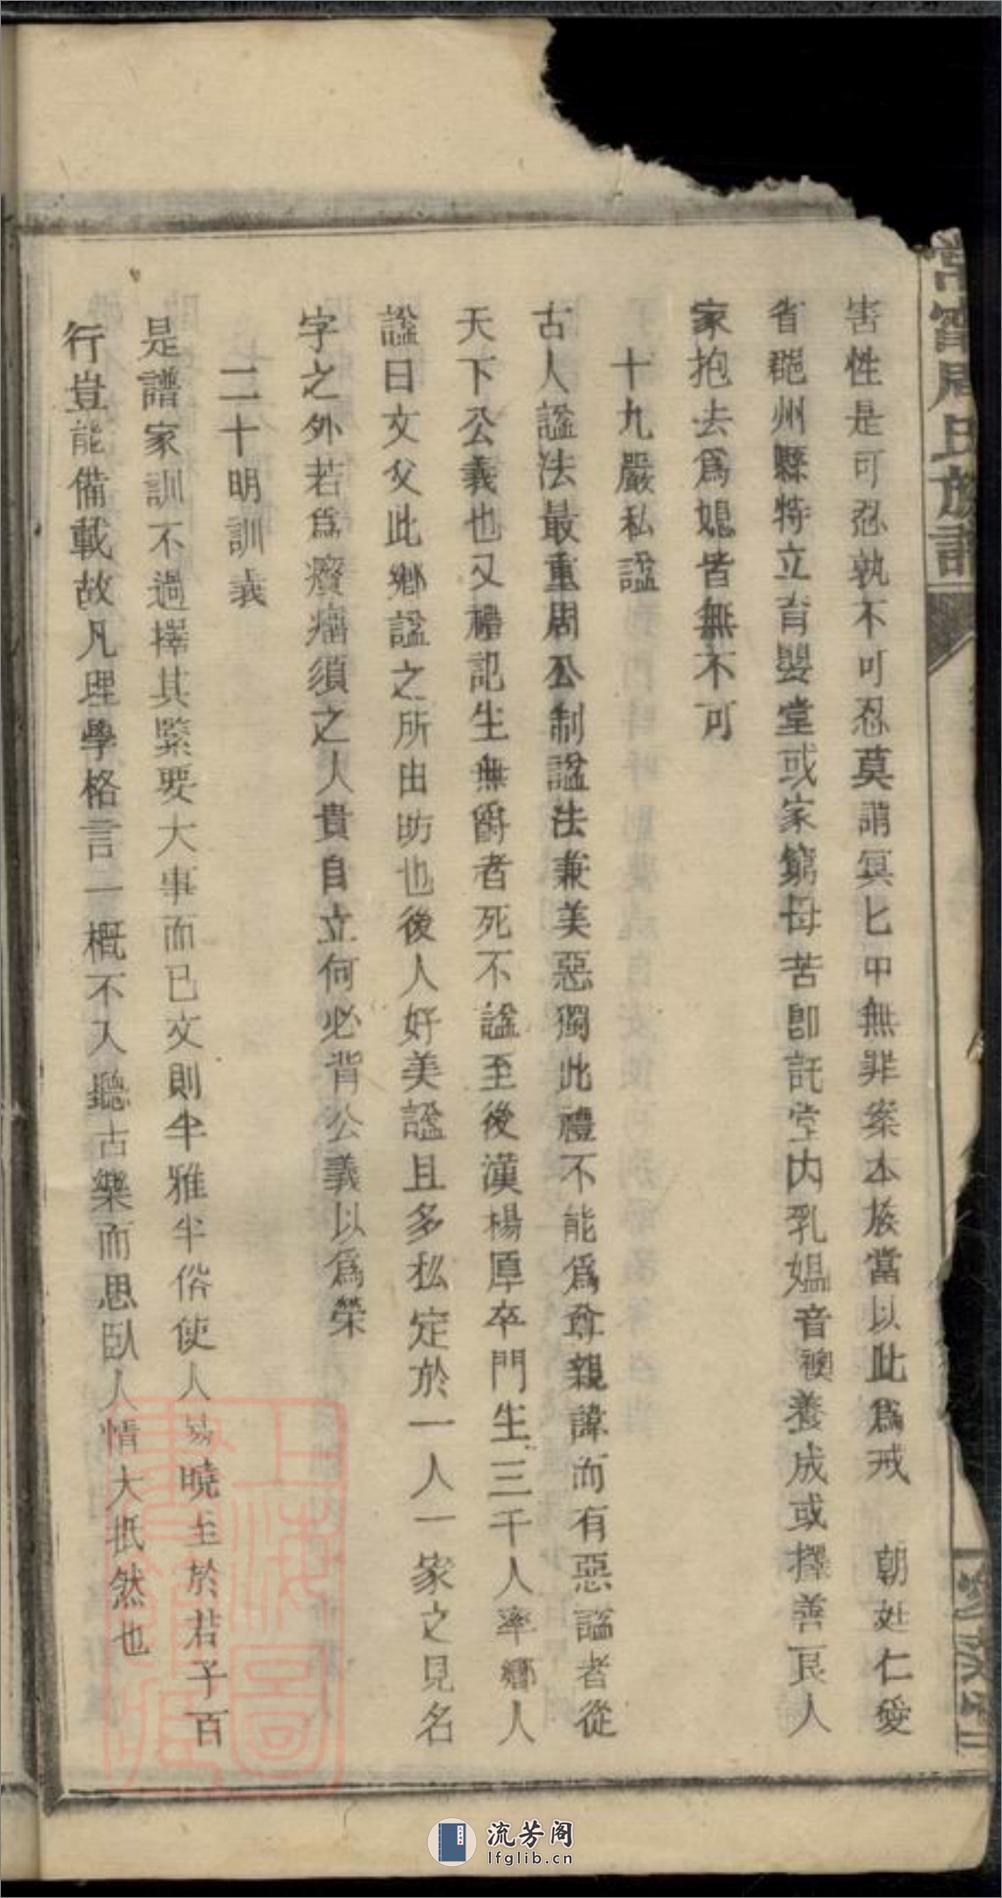 常甯周氏族譜
害性是可忍孰不可忍莫謂冥乜中無罪案本族當以此爲戒 朝廷仁愛
省郡州縣特立育嬰堂或家窮母苦卽託堂內乳媼音襖養成或擇善良人
家抱去爲媳皆無不可
十九嚴私諡
古人諡法最重周公制諡法兼美惡獨此禮不能爲尊親諱而有惡諡者從
天下公義也又禮記生無爵者死不諡至後漢楊厚卒門生三千人率鄉人
諡曰文父此鄉諡之所由昉也後人好美諡且多私定於一人一家之見名
字之外若爲癠瘤須之人貴自立何必背公義以爲榮
二十明訓義
是譜家訓不過擇其緊要大事而已文則半雅半俗使人易曉至於君子百
行豈能備載故凡理學格言一概不入聽古樂而思臥人情大抵然也
上海圖書館藏
流芳阁
lfglib.cn